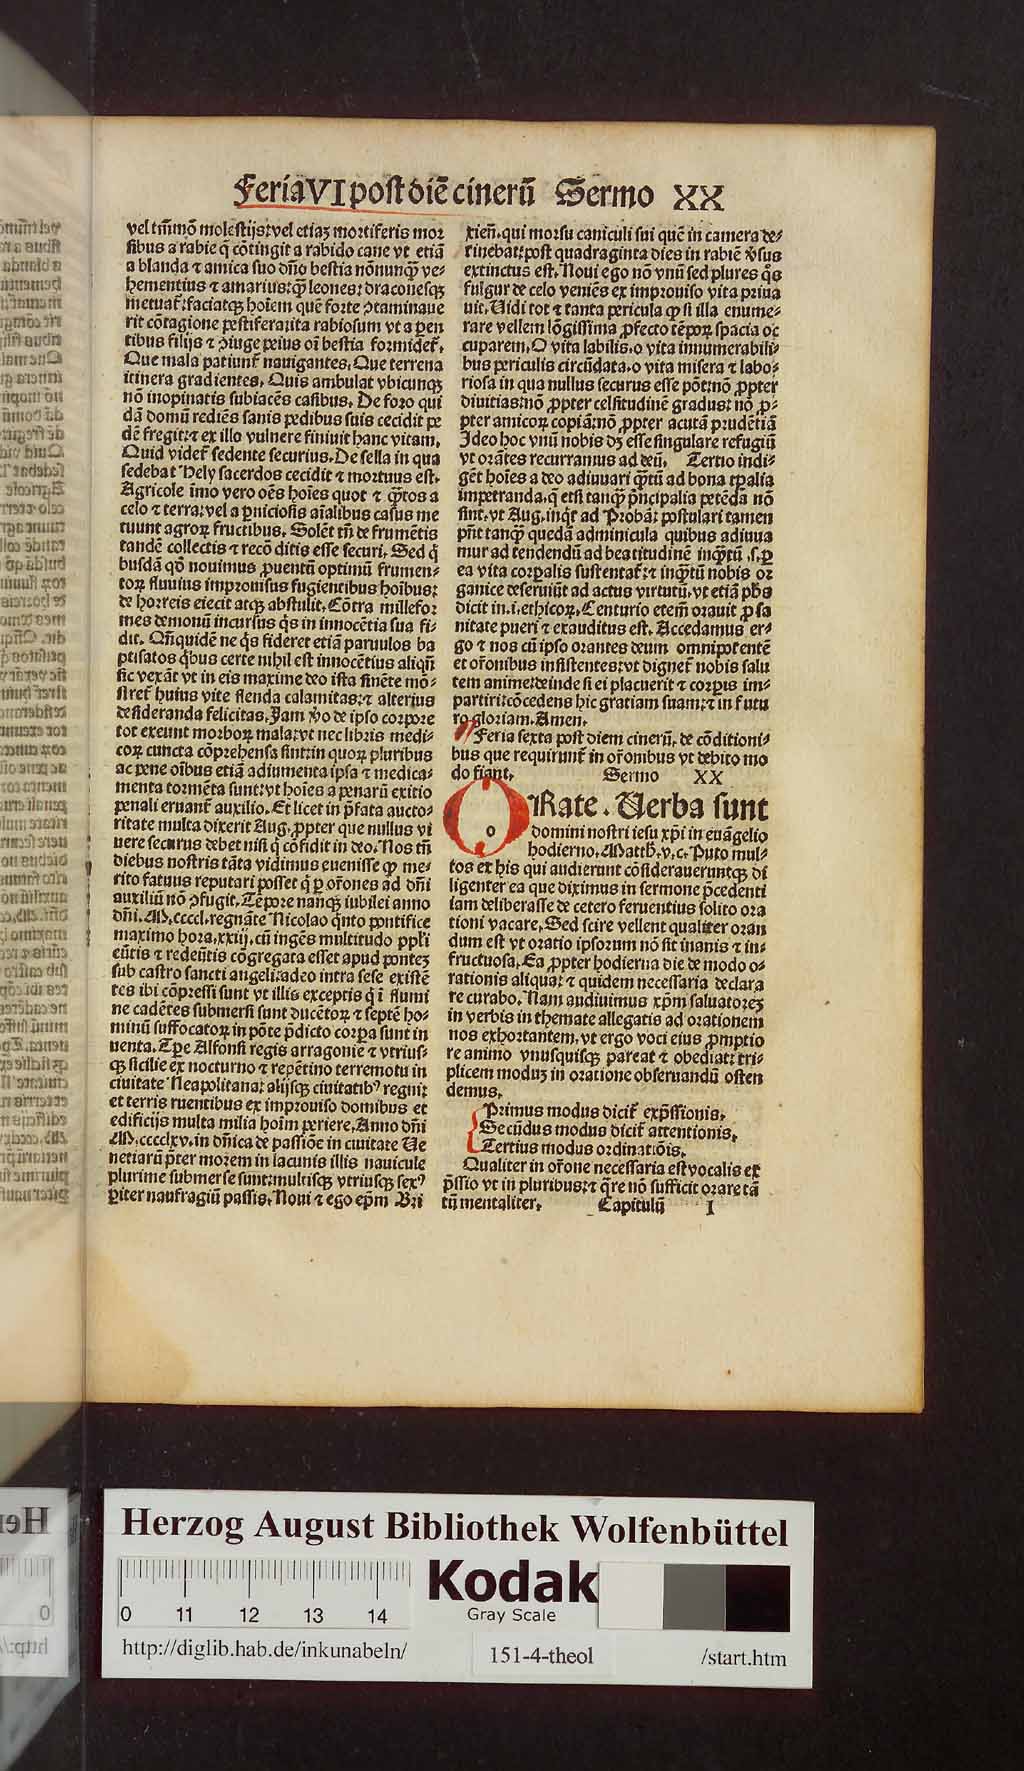 Feria VI post diē cinerū Sermo XX
vel tm̄mō molestijs: vel etiaꝫ mortiferis mor
sibus a rabie q̄ cōtingit a rabido cane vt etiā
a blanda ⁊ amica suo dn̄o bestia nōnunqꝫ ve-
hementius ⁊ amarius: qꝫ leones: dracouesqꝫ
metuat᷑: faciatqꝫ hoīem quē forte ꝯtaminaue
rit cōtagione pestifera: ita rabiosum vt a paren
tibus filijs ⁊ ꝯiuge peius oī bestia formidet᷑.
Que mala patiunt᷑ nauigantes. Que terrena
itinera gradientes. Quis ambulat vbicunqꝫ
nō inopinatis subiacēs casibus. De foro qui
dā domū rediēs sanis pedibus suis cecidit pe
dē fregit: ⁊ ex illo vulnere finiuit hanc vitam.
Quid videt᷑ sedente securius. De sella in qua
sedebat Hely sacerdos cecidit ⁊ mortuus est.
Agricole īmo vero oēs hoīes quot ⁊ q̄tos a
celo ⁊ terra: vel a ꝑniciosis aīalibus casus me
tuunt agroꝝ fructibus. Solēt tn̄ de frumētis
tandē collectis ⁊ recō ditis esse securi. Sed q̄
busdā qđ nouimus ꝓuentū optimū frumen-
toꝝ fluuius improuisus fugientibus hoībus:
de horreis eiecit atqꝫ abstulit. Cōtra millefor
mes demonū incursus q̄s in innocētia sua fi-
dit. Qn̄quidē ne q̄s fideret etiā paruulos ba
ptisatos q̄bus certe nihil est innocētius aliqn̄
sic vexāt vt in eis maxime deo ista sinēte mō-
stret᷑ huius vite flenda calamitas: ⁊ alterius
desideranda felicitas. Jam v̄o de ipso corpore
tot exeunt morboꝝ mala: vt nec libris medi-
coꝝ cuncta cōprehensa sint: in quoꝝ pluribus
ac pene oībus etiā adiumenta ipsa ⁊ medica-
menta tormēta sunt: vt hoīes a penarū exitio
penali eruant᷑ auxilio. Et licet in p̄fata aucto-
ritate multa dixerit Aug. ꝓpter que nullus vi
uere securus debet nisi q̄ cōfidit in deo. Nos tn̄
diebus nostris tāta vidimus euenisse qꝫ me-
rito fatuus reputari posset q̄ ꝑ or̄ones ad dn̄i
auxiliū nō ꝯfugit. Tēpore nanqꝫ iubilei anno
dn̄i. M.ccccl. regnāte Nicolao q̄nto pontifice
maximo hora. xxij. cū ingēs multitudo ppl̄i
eūtis ⁊ redeūtis cōgregata esset apud ponteꝫ
sub castro sancti angeli: adeo intra sese existē
tes ibi cōpressi sunt vt illis exceptis q̄ ī flumi
ne cadētes submersi sunt ducētoꝝ ⁊ septē ho-
minū suffocatoꝝ in pōte p̄dicto corꝑa sunt in
uenta. Tꝑe Alfonsi regis arragonie ⁊ vtrius-
qꝫ sicilie ex nocturno ⁊ repētino terremotu in
ciuitate Neapolitana: alijsqꝫ ciuitatibꝰ regni:
et terris ruentibus ex improuiso domibus et
edificijs multa milia hoīm periere. Anno dn̄i
M.cccclxv. in dn̄ica de passiōe in ciuitate Ue
netiarū p̄ter morem in lacunis illis nauicule
plurime submerse sunt: multisqꝫ vtriusqꝫ sexꝰ
ꝑiter naufragiū passis. Noui ⁊ ego ep̄m Bri
xien̄. qui morsu caniculi sui quē in camera de-
tinebat: post quadraginta dies in rabiē v̄sus
extinctus est. Noui ego nō vnū sed plures q̄s
fulgur de celo veniēs ex improuiso vita priua
uit. Uidi tot ⁊ tanta pericula qꝫ si illa enume-
rare vellem lōgissima ꝓfecto tēpoꝝ spacia oc
cuparem. O vita labilis. o vita innumerabili-
bus periculis circūdata. o vita misera ⁊ labo-
riosa in qua nullus securus esse pōt: nō ꝓpter
diuitias: nō ꝓpter celsitudinē gradus: nō ꝓ-
pter amicoꝝ copiā: nō ꝓpter acutā prudētiā
Ideo hoc vnū nobis dꝫ esse singulare refugiū
vt orātes recurramus ad deū. Tertio indi-
gēt hoīes a deo adiuuari q̄tū ad bona tꝑalia
impetranda. q̄ etsi tanqꝫ p̄ncipalia petēda nō
sint. vt Aug. inq̄t ad Probā: postulari tamen
pn̄t tanqꝫ quedā adminicula quibus adiuua
mur ad tendendū ad beatitudinē inq̄tū .s. ꝑ
ea vita corꝑalis sustentat᷑: ⁊ inq̄tū nobis or
ganice deseruiūt ad actus virtutū. vt etiā ph̄s
dicit in .i. ethicoꝝ. Centurio etem̄ orauit ꝓ sa
nitate pueri ⁊ exauditus est. Accedamus er-
go ⁊ nos cū ipso orantes deum omnipotentē
et or̄onibus insistentes: vt dignet᷑ nobis salu
tem anime: deinde si ei placuerit ⁊ corꝑis im-
partiri: cōcedens hic gratiam suam: ⁊ in futu
ro gloriam. Amen.
Feria sexta post diem cinerū. de cōditioni-
bus que requirunt᷑ in or̄onibus vt debito mo
do fiant. Sermo XX
ORate. Uerba sunt
domini nostri iesu xp̄i in euāgelio
hodierno. Matth̄. v. c. Puto mul-
tos ex his qui audierunt cōsiderauerūntqꝫ di
ligenter ea que diximus in sermone p̄cedenti
iam deliberasse de cetero feruentius solito ora
tioni vacare. Sed scire vellent qualiter oran
dum est vt oratio ipsorum nō sit inanis ⁊ in-
fructuosa. Ea ꝓpter hodierna die de modo o-
rationis aliqua: ⁊ quidem necessaria declara
re curabo. Nam audiuimus xp̄m saluatoreꝫ
in verbis in themate allegatis ad orationem
nos exhortantem. vt ergo voci eius ꝓmptio
re animo vnusquisqꝫ pareat ⁊ obediat: tri-
plicem moduꝫ in oratione obseruandū osten
demus.
Primus modus dicit᷑ exp̄ssionis.
Secūdus modus dicit᷑ attentionis.
Tertius modus ordinatiōis.
Qualiter in or̄one necessaria est vocalis ex
p̄ssio vt in pluribus: ⁊ q̄re nō sufficit orare tā
tū mentaliter. Capitulū I
Herzog August Bibliothek Wolfenbüttel
Kodak
Gray Scale
0 11 12 13 14
http://diglib.hab.de/inkunabeln/ 151-4-theol /start.htm